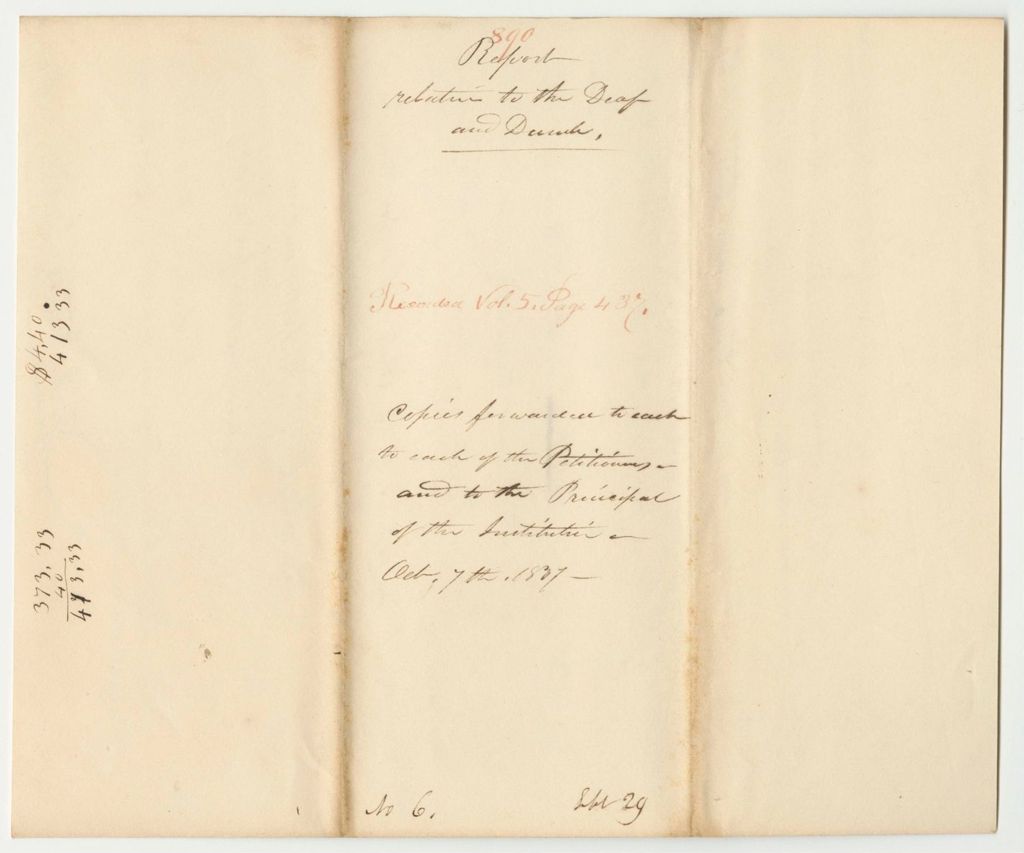 890
Report
relative to the Deaf
and Dumb,
Recorded Vol. 5. Page 437.
Copies forwarded to each
to each of the Petitioners –
and to the Principal
of the Institution –
Oct. 7th. 1837 –
No 6.
29
$4,40
413 33
373,33
40
413,33